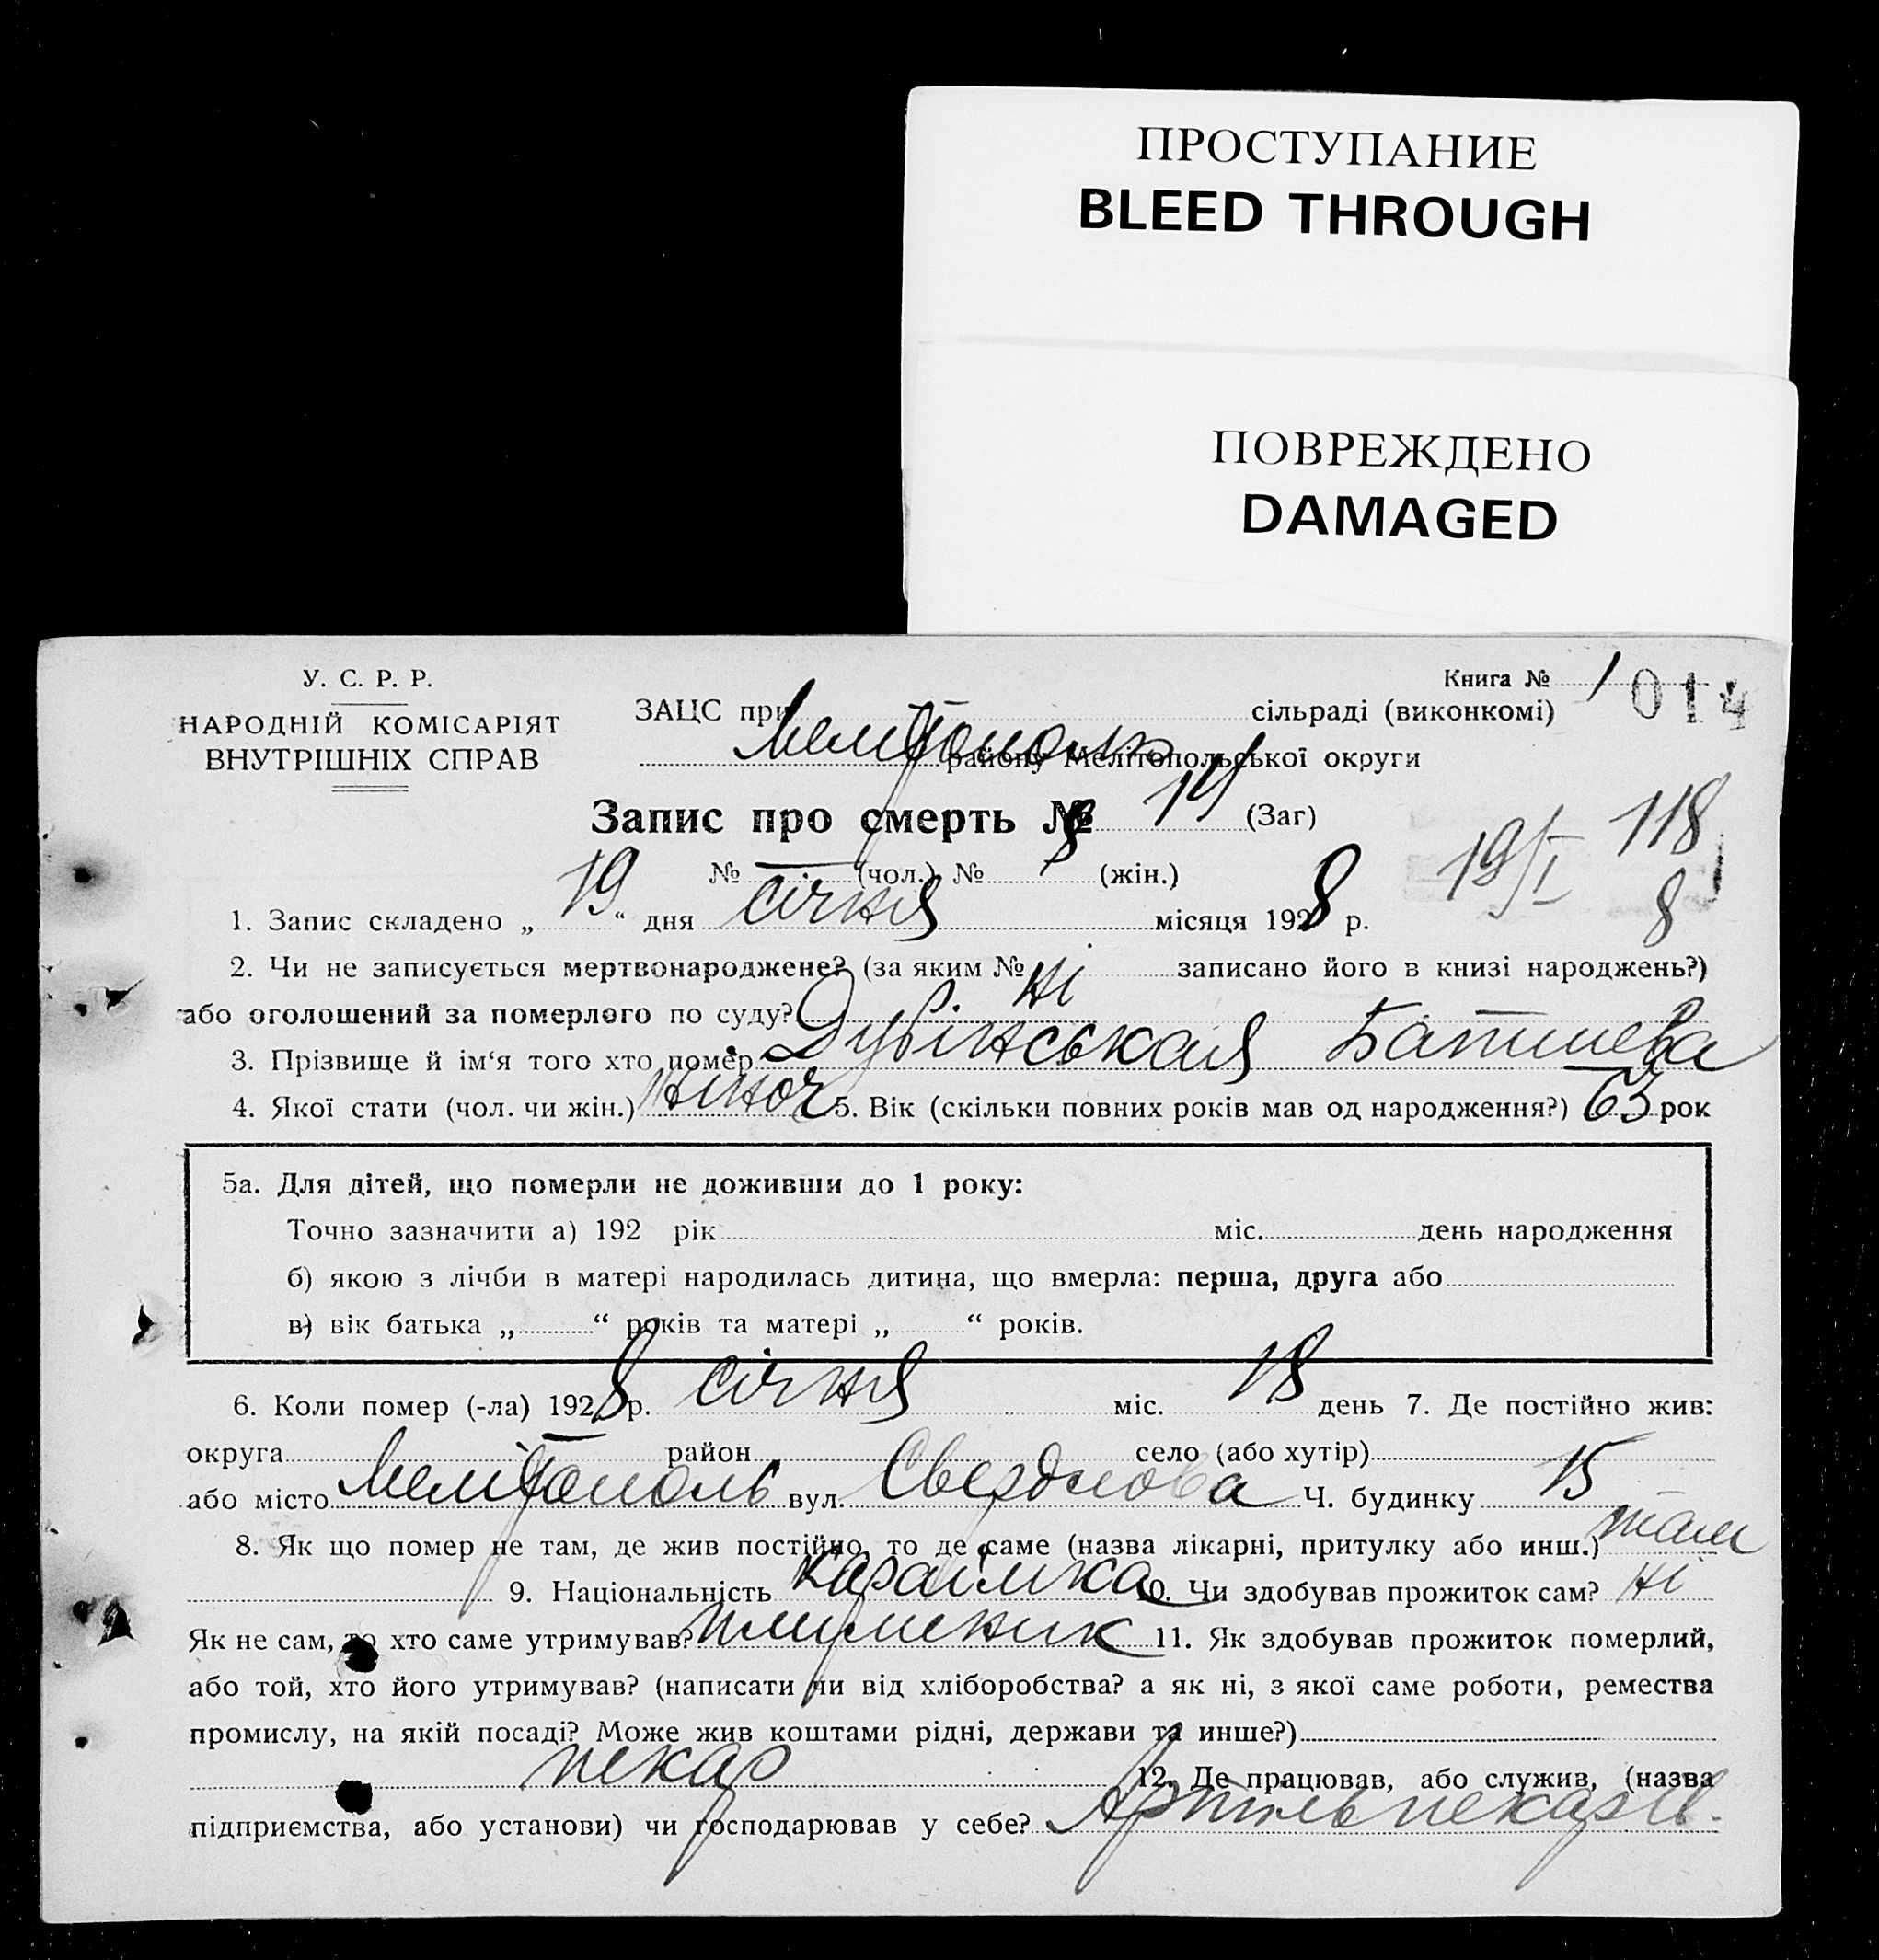 ПРОСТУПАНИЕ
BLEED THROUGH
ПОВРЕЖДЕНО
DAMAGED
У. С. Р. Р.
НАРОДНІЙ КОМІСАРІЯТ
ВНУТРІШНІХ СПРАВ
Книга № 1 014
ЗАЦС при Мелітополь сільраді (виконкомі)
району Мелітопольської округи
Запис про смерть № 14 (Заг)
118
19/I
№ — (чол.) № 8 (жін.)
8
1. Запис складено „ 19 “ дня січня місяця 1928 р.
2. Чи не записується мертвонароджене? (за яким № ні записано його в книзі народжень?)
або оголошений за померлого по суду?
3. Прізвище й ім‘я того хто помер Дубінськая Батшева
4. Якої стати (чол. чи жін.) жіноч 5. Вік (скільки повних років мав од народження?) 63 рок
5а. Для дітей, що померли не доживши до 1 року:
Точно зазначити а) 192 рік міс. день народження
б) якою з лічби в матері народилась дитина, що вмерла: перша, друга або
в) вік батька „ “ років та матері „ “ років.
6. Коли помер (-ла) 1928 р. січня міс. 18 день 7. Де постійно жив:
округа район село (або хутір)
або місто Мелітополь вул. Свердлова Ч. будинку 15
8. Як що помер не там, де жив постійно, то де саме (назва лікарні, притулку або инш.) там
9. Національність караїмка 10. Чи здобував прожиток сам? ні
Як не сам, то хто саме утримував? племеник 11. Як здобував прожиток померлий,
або той, хто його утримував? (написати чи від хліборобства? а як ні, з якої саме роботи, ремества
промислу, на якій посаді? Може жив коштами рідні, держави та инше?)
пекар 12. Де працював, або служив, (назва
підприємства, або установи) чи господарював у себе? Артіль пекарів